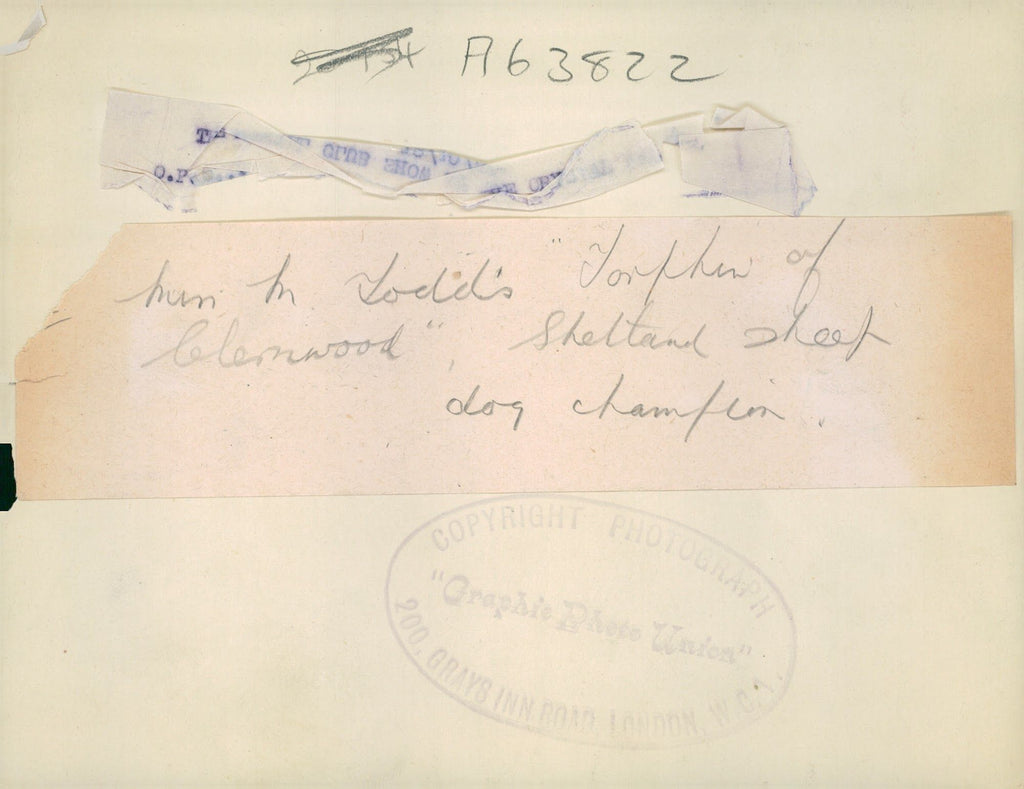 A63822
CLUB SHOW
O.P.
Miss M Todd's "Torphin of
Glernwood", Shetland sheep
dog champion.
COPYRIGHT PHOTOGRAPH
"Graphic Photo Union"
200, GRAYS INN ROAD, LONDON, W.C.1.